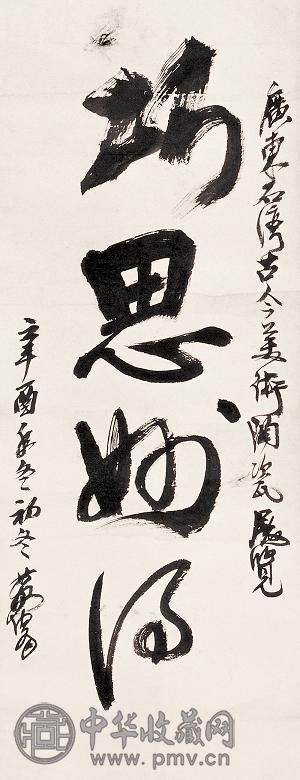 廣東石灣古今美術陶瓷展覽
巧思妙得
辛酉年冬初冬
中华收藏网
www.pmv.cn